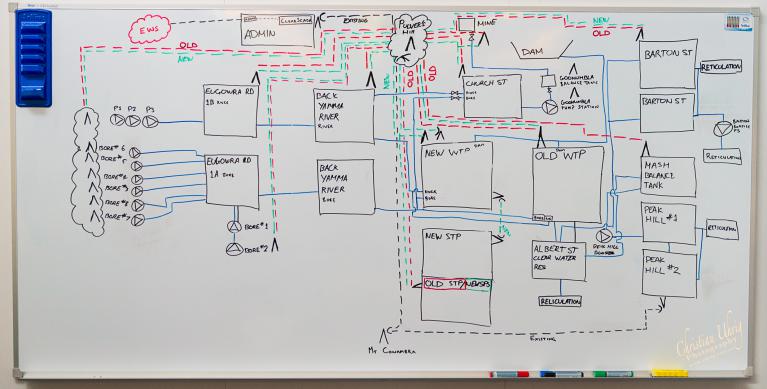 EWS
ADMIN
CLEARSCADA
EXISTING
OLD
NEW
PARKES
HILL
MINE
NEW
OLD
DAM
GOONUMBLA
BALANCE TANK
GOONUMBLA
PUMP STATION
BARTON ST
RETICULATION
BARTON ST
RETICULATION
P1 P2 P3
EUGOWRA RD
1B RIVER
BACK
YAMMA
RIVER
RIVER
CHURCH ST
RIVER
BORE
NEW
OLD
OLD
BORE#6
BORE#5
BORE#4
BORE#3
BORE#7
EUGOWRA RD
1A BORE
BACK
YAMMA
RIVER
BORE
NEW WTP
DAM
RIVER
BORE
OLD WTP
DAM
MASH
BALANCE
TANK
BORE#1
BORE#2
NEW STP
OLD STP/NEWSPS
ALBERT ST
CLEAR WATER
RES
RETICULATION
PEAK HILL
BOOSTER
PEAK
HILL #1
RETICULATION
PEAK
HILL #2
MT COONAMBRA
EXISTING
Christian Uhrig
Photography